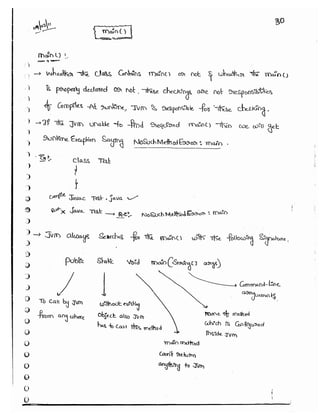 30
main()
main() :
→ whether the class Contains main() or not & whether the main()
is properly declared or not. these checkings are not responsibilities
of Compiler. At runtime, Jvm is responsible for these checking.
→ If the Jvm unable to find required main() then we will get
runtime Exception Saying NoSuchMethodError: main.
Ex:
class Test
{
}
Compile Javac Test.java ✓
Run × Java Test → R.E: NoSuchMethodError: main
→ Jvm always Searches for the main() with the following Signature.
public static void main(String[] args)
To Call by Jvm
from any where
without existing
object also Jvm
has to call this method
main method
can't return
anything to Jvm
name of method
which is Configured
inside Jvm
Command-line
arguments